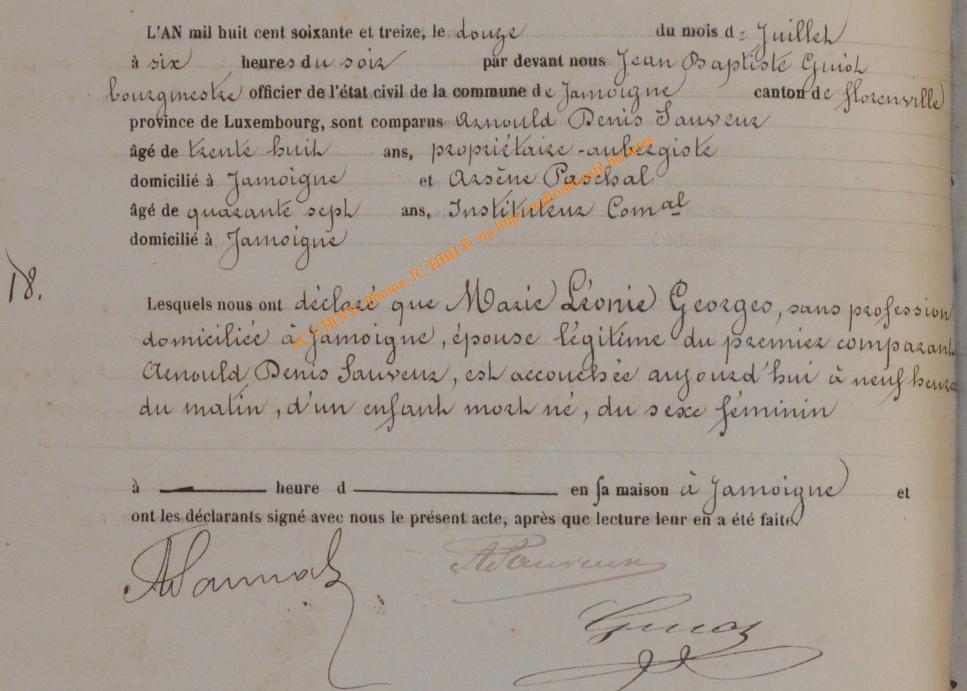 L'AN mil huit cent soixante et treize, le douze du mois de Juillet
à six heures du soir par devant nous Jean Baptiste Guiot
bourgmestre officier de l'état civil de la commune de Jamoigne canton de florenville
province de Luxembourg, sont comparus Arnould Denis Sauveur
âgé de trente huit ans, propriétaire-aubergiste
domicilié à Jamoigne et Arsène Paschal
âgé de quarante sept ans, Instituteur Comal
domicilié à Jamoigne
18.
Lesquels nous ont déclaré que Marie Léonie Georges, sans profession
domiciliée à Jamoigne, épouse légitime du premier comparant
Arnould Denis Sauveur, est accouchée aujourd'hui à neuf heures
du matin, d'un enfant mort né, du sexe féminin
à heure d en sa maison à Jamoigne et
ont les déclarants signé avec nous le présent acte, après que lecture leur en a été faite.
Guiot